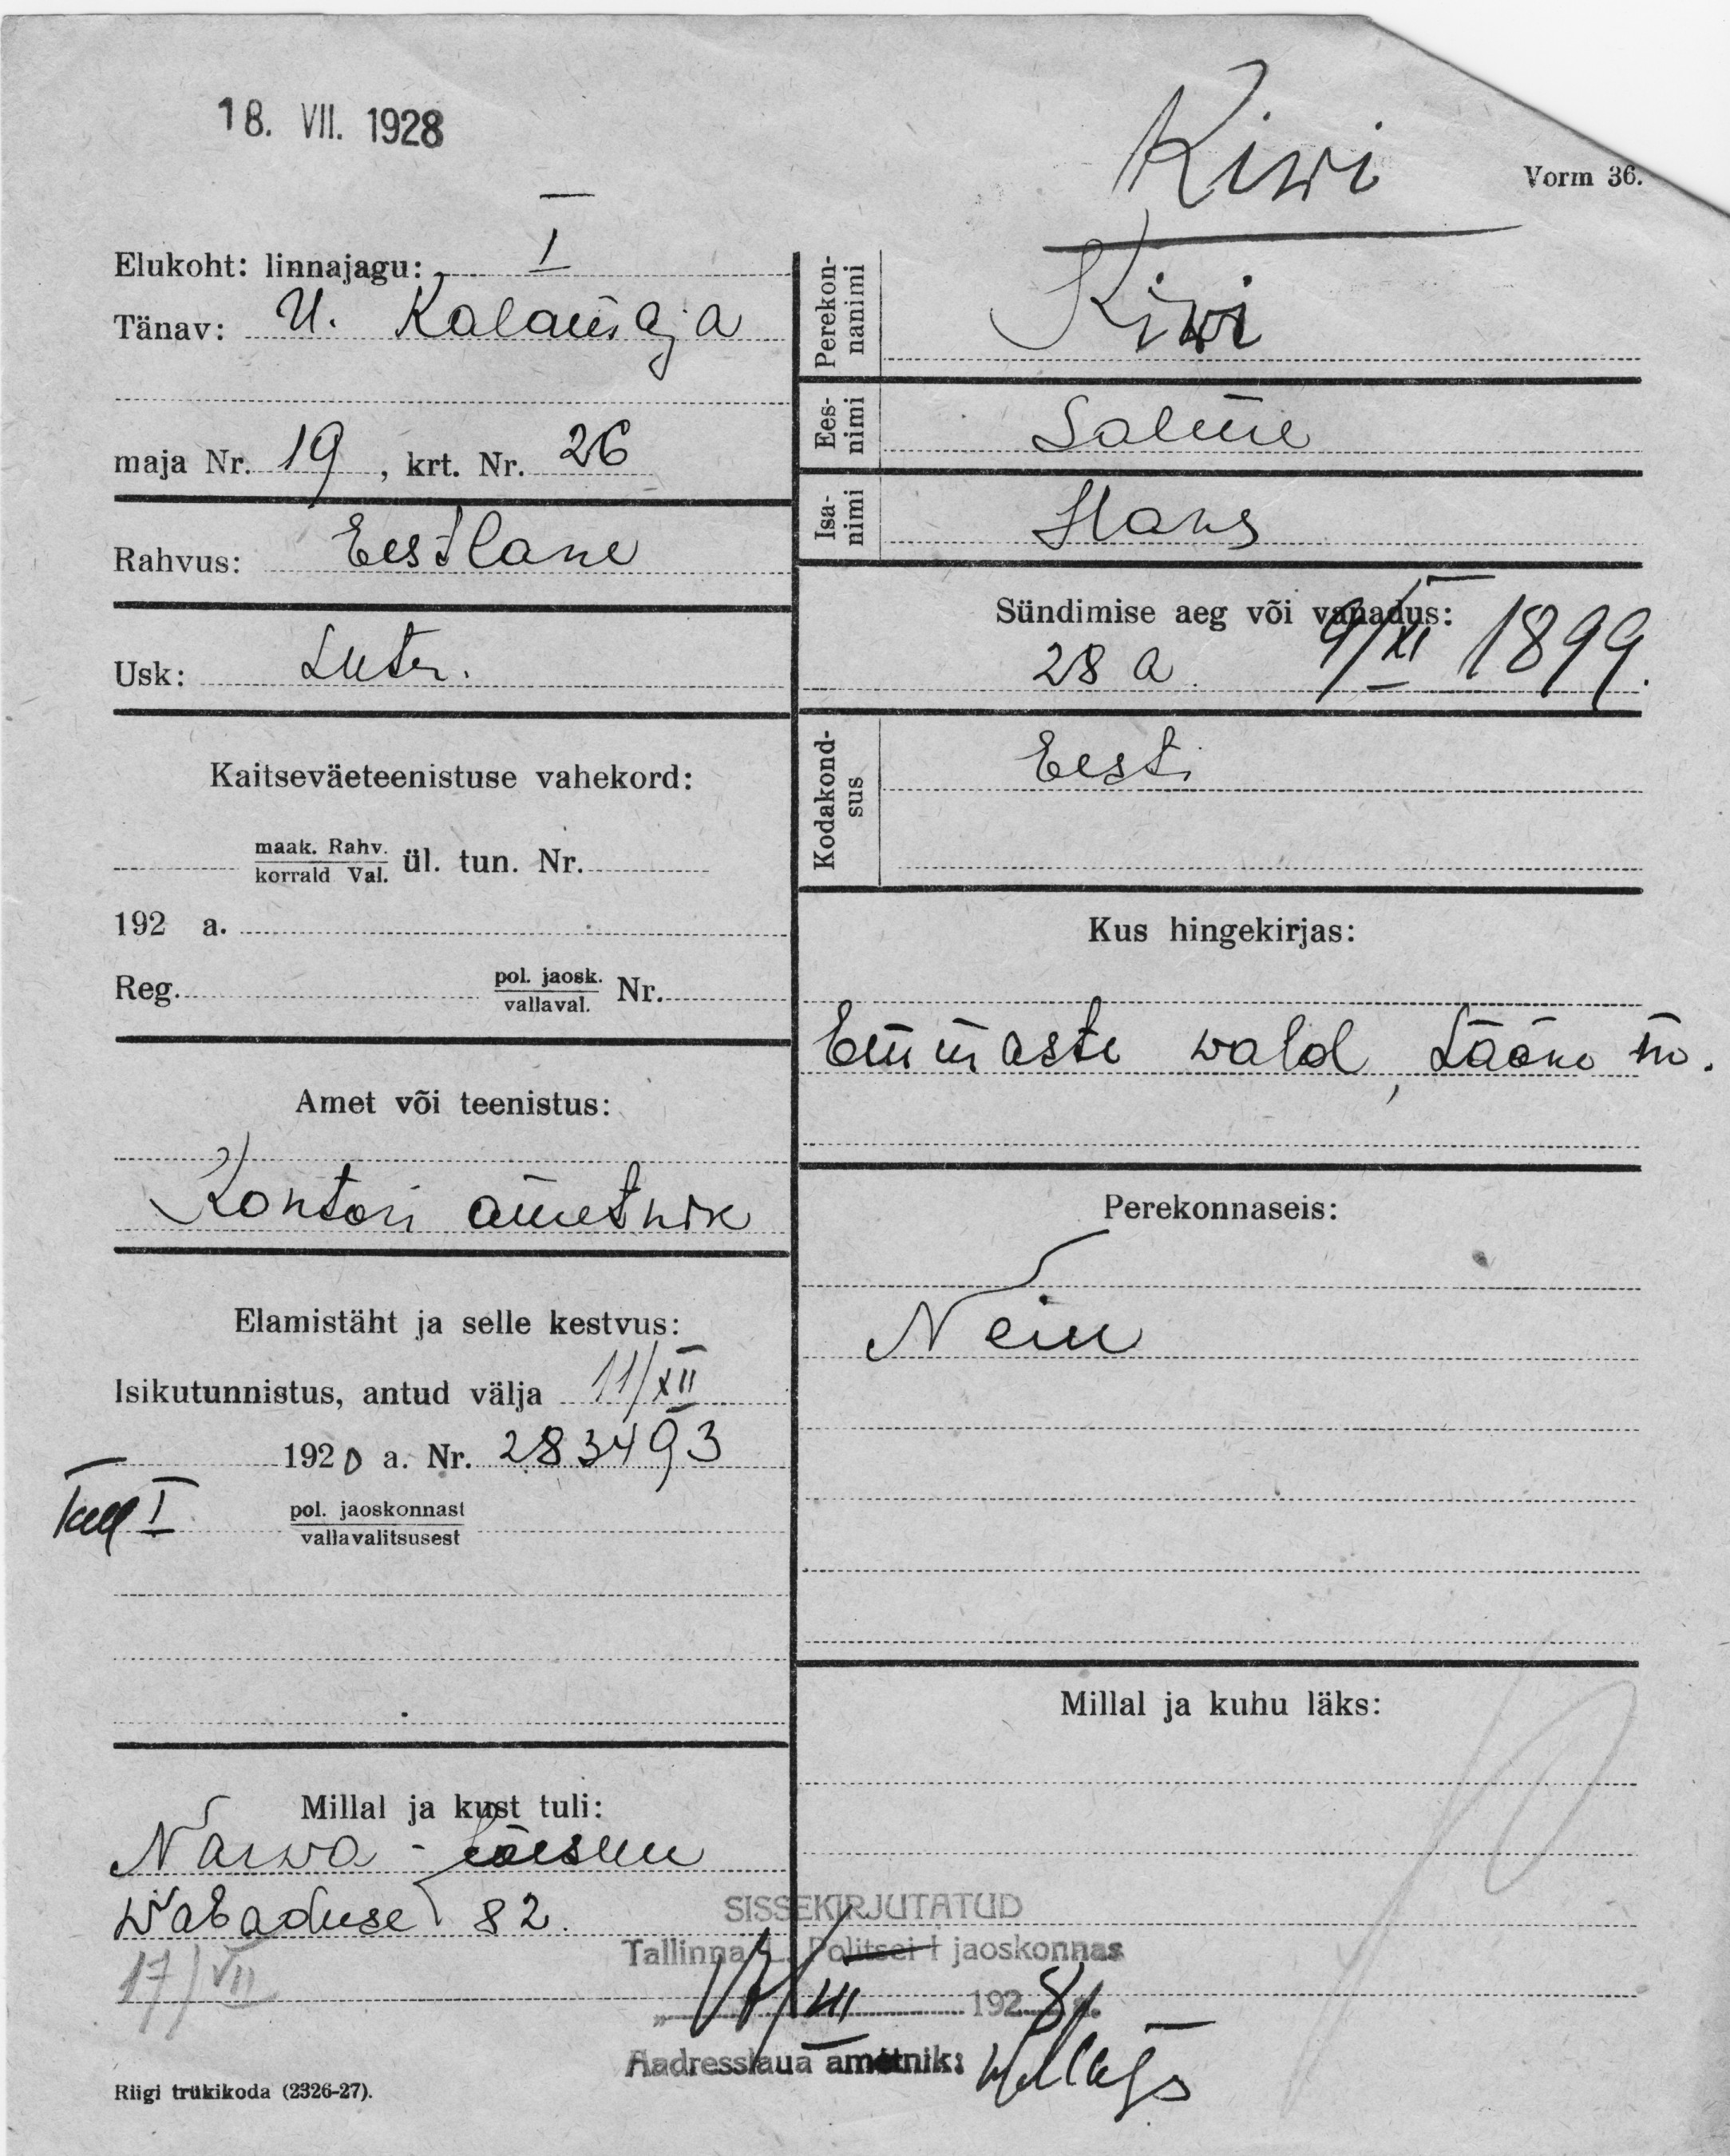 18. VII. 1928
Kiwi
Vorm 36.
Elukoht: linnajagu: I
Tänav: U. Kalamaja
maja Nr. 19, krt. Nr. 26
Rahvus: Eestlane
Usk: Luter.
Kaitseväeteenistuse vahekord:
maak. Rahv.
korrald Val. ül. tun. Nr.
192 a.
Reg. pol. jaosk.
vallaval. Nr.
Amet või teenistus:
Kontori ametnik
Elamistäht ja selle kestvus:
Isikutunnistus, antud välja 11/XII
1920 a. Nr. 283493
I pol. jaoskonnast
vallavalitsusest
Millal ja kust tuli:
Narwa-Jõesuu
Wabaduse 82.
17/VII
Riigi trükikoda (2326-27).
Perekon-
nanimi
Kiwi
Ees-
nimi
Salme
Isa-
nimi
Hans
Sündimise aeg või vanadus:
28 a. 9/XI 1899.
Kodakond-
sus
Eesti
Kus hingekirjas:
Emmaste wald, Lääne m.
Perekonnaseis:
Neiu
Millal ja kuhu läks:
SISSEKIRJUTATUD
Tallinna L. Politsei I jaoskonnas
" 17/VII 1928 a.
Aadresslaua ametnik: